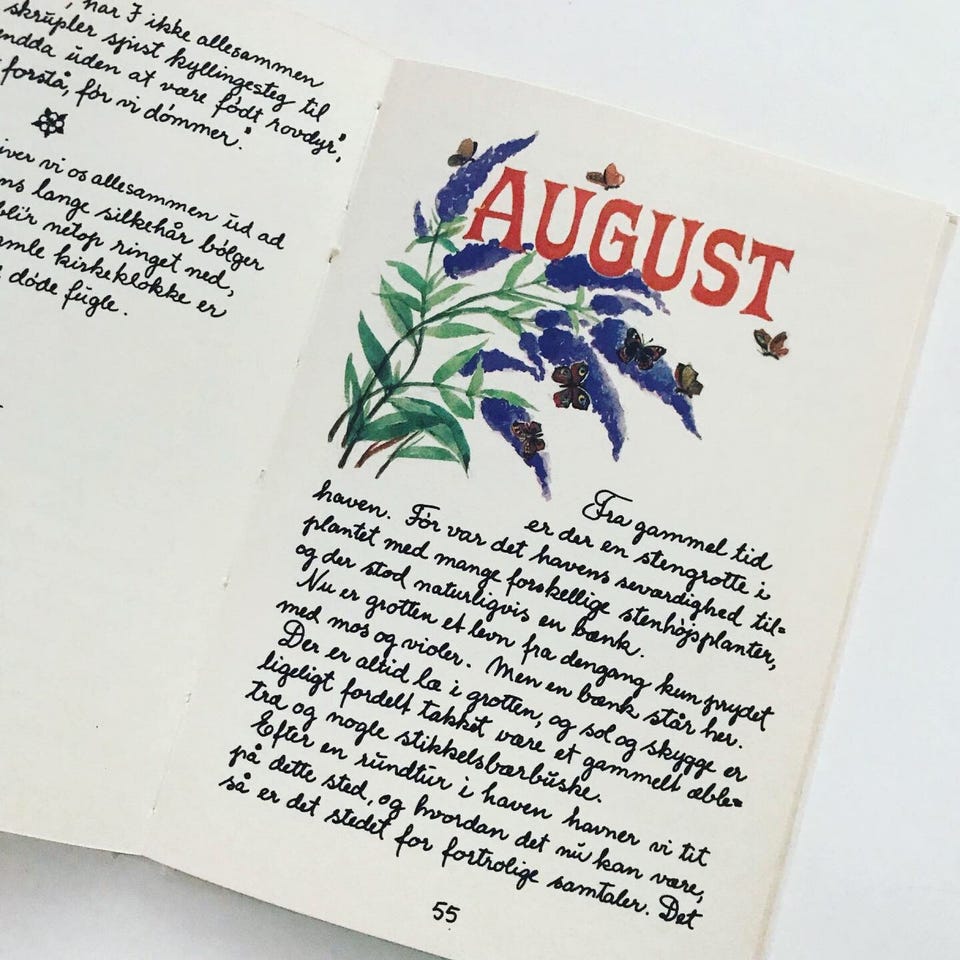 har I ikke allesammen
skrupler spist kyllingesteg til
endda uden at være født rovdyr",
forstå, før vi dømmer".
iver vi os allesammen ud ad
lange silkehår bølger
blir netop ringet ned,
kirkeklokke er
døde fugle.
AUGUST
Fra gammel tid
er der en stengrotte i
haven. Før var det havens seværdighed til=
plantet med mange forskellige stenhøjsplanter,
og der stod naturligvis en bænk.
Nu er grotten et levn fra dengang kun prydet
med mos og violer. Men en bænk står her.
Der er altid læ i grotten, og sol og skygge er
ligeligt fordelt takket være et gammelt æble=
træ og nogle stikkelsbærbuske.
Efter en rundtur i haven havner vi tit
på dette sted, og hvordan det nu kan være,
så er det stedet for fortrolige samtaler. Det
55